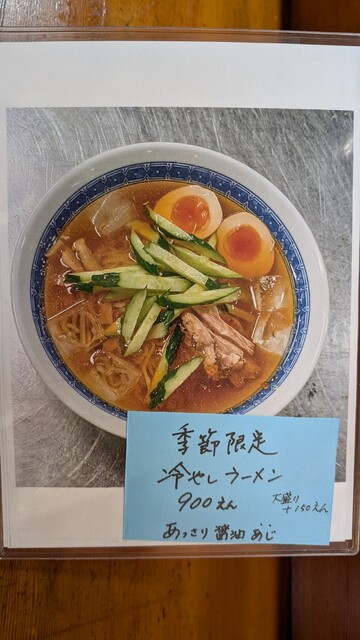 季節限定
冷やしラーメン
900えん
大盛り
+150えん
あっさり醤油あじ